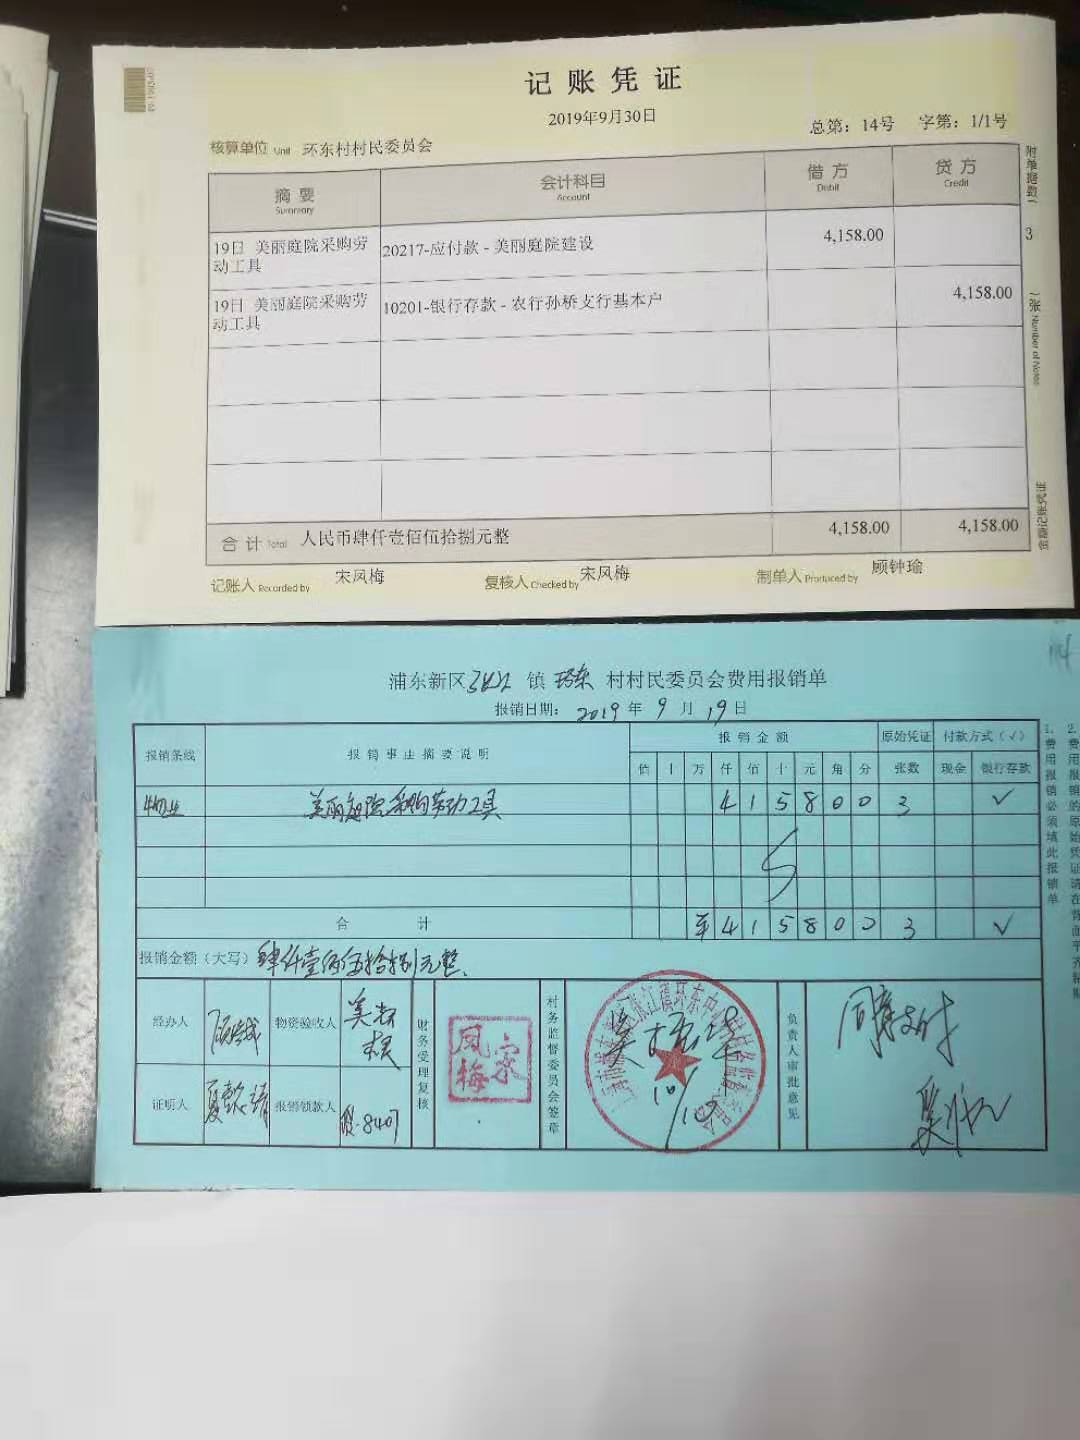 记账凭证
2019年9月30日
总第：14号 字第：1/1号
核算单位 Unit 环东村村民委员会
附单据数（ 3 ）张 Number of Notes
摘要 Summary 会计科目 Account 借方 Debit 贷方 Credit
19日 美丽庭院采购劳动工具 20217-应付款 - 美丽庭院建设 4,158.00
19日 美丽庭院采购劳动工具 10201-银行存款 - 农行孙桥支行基本户 4,158.00
合计 Total 人民币肆仟壹佰伍拾捌元整 4,158.00 4,158.00
记账人 Recorded by 宋凤梅 复核人 Checked by 宋凤梅 制单人 Produced by 顾钟瑜
浦东新区 镇 环东 村村民委员会费用报销单
报销日期： 2019 年 9 月 19 日
报销条线 报销事由摘要说明 报销金额 原始凭证 付款方式（√）
佰 十 万 仟 佰 十 元 角 分 张数 现金 银行存款
物业 美丽庭院采购劳动工具 4 1 5 8 0 0 3 √
合计 4 1 5 8 0 0 3 √
报销金额（大写） 肆仟壹佰伍拾捌元整
经办人 物资验收人 财务受理复核 宋凤梅 村务监督委员会签章 10/10 负责人审批意见 同意支付
证明人 报销领款人 8407
1.费用报销必须填此报销单